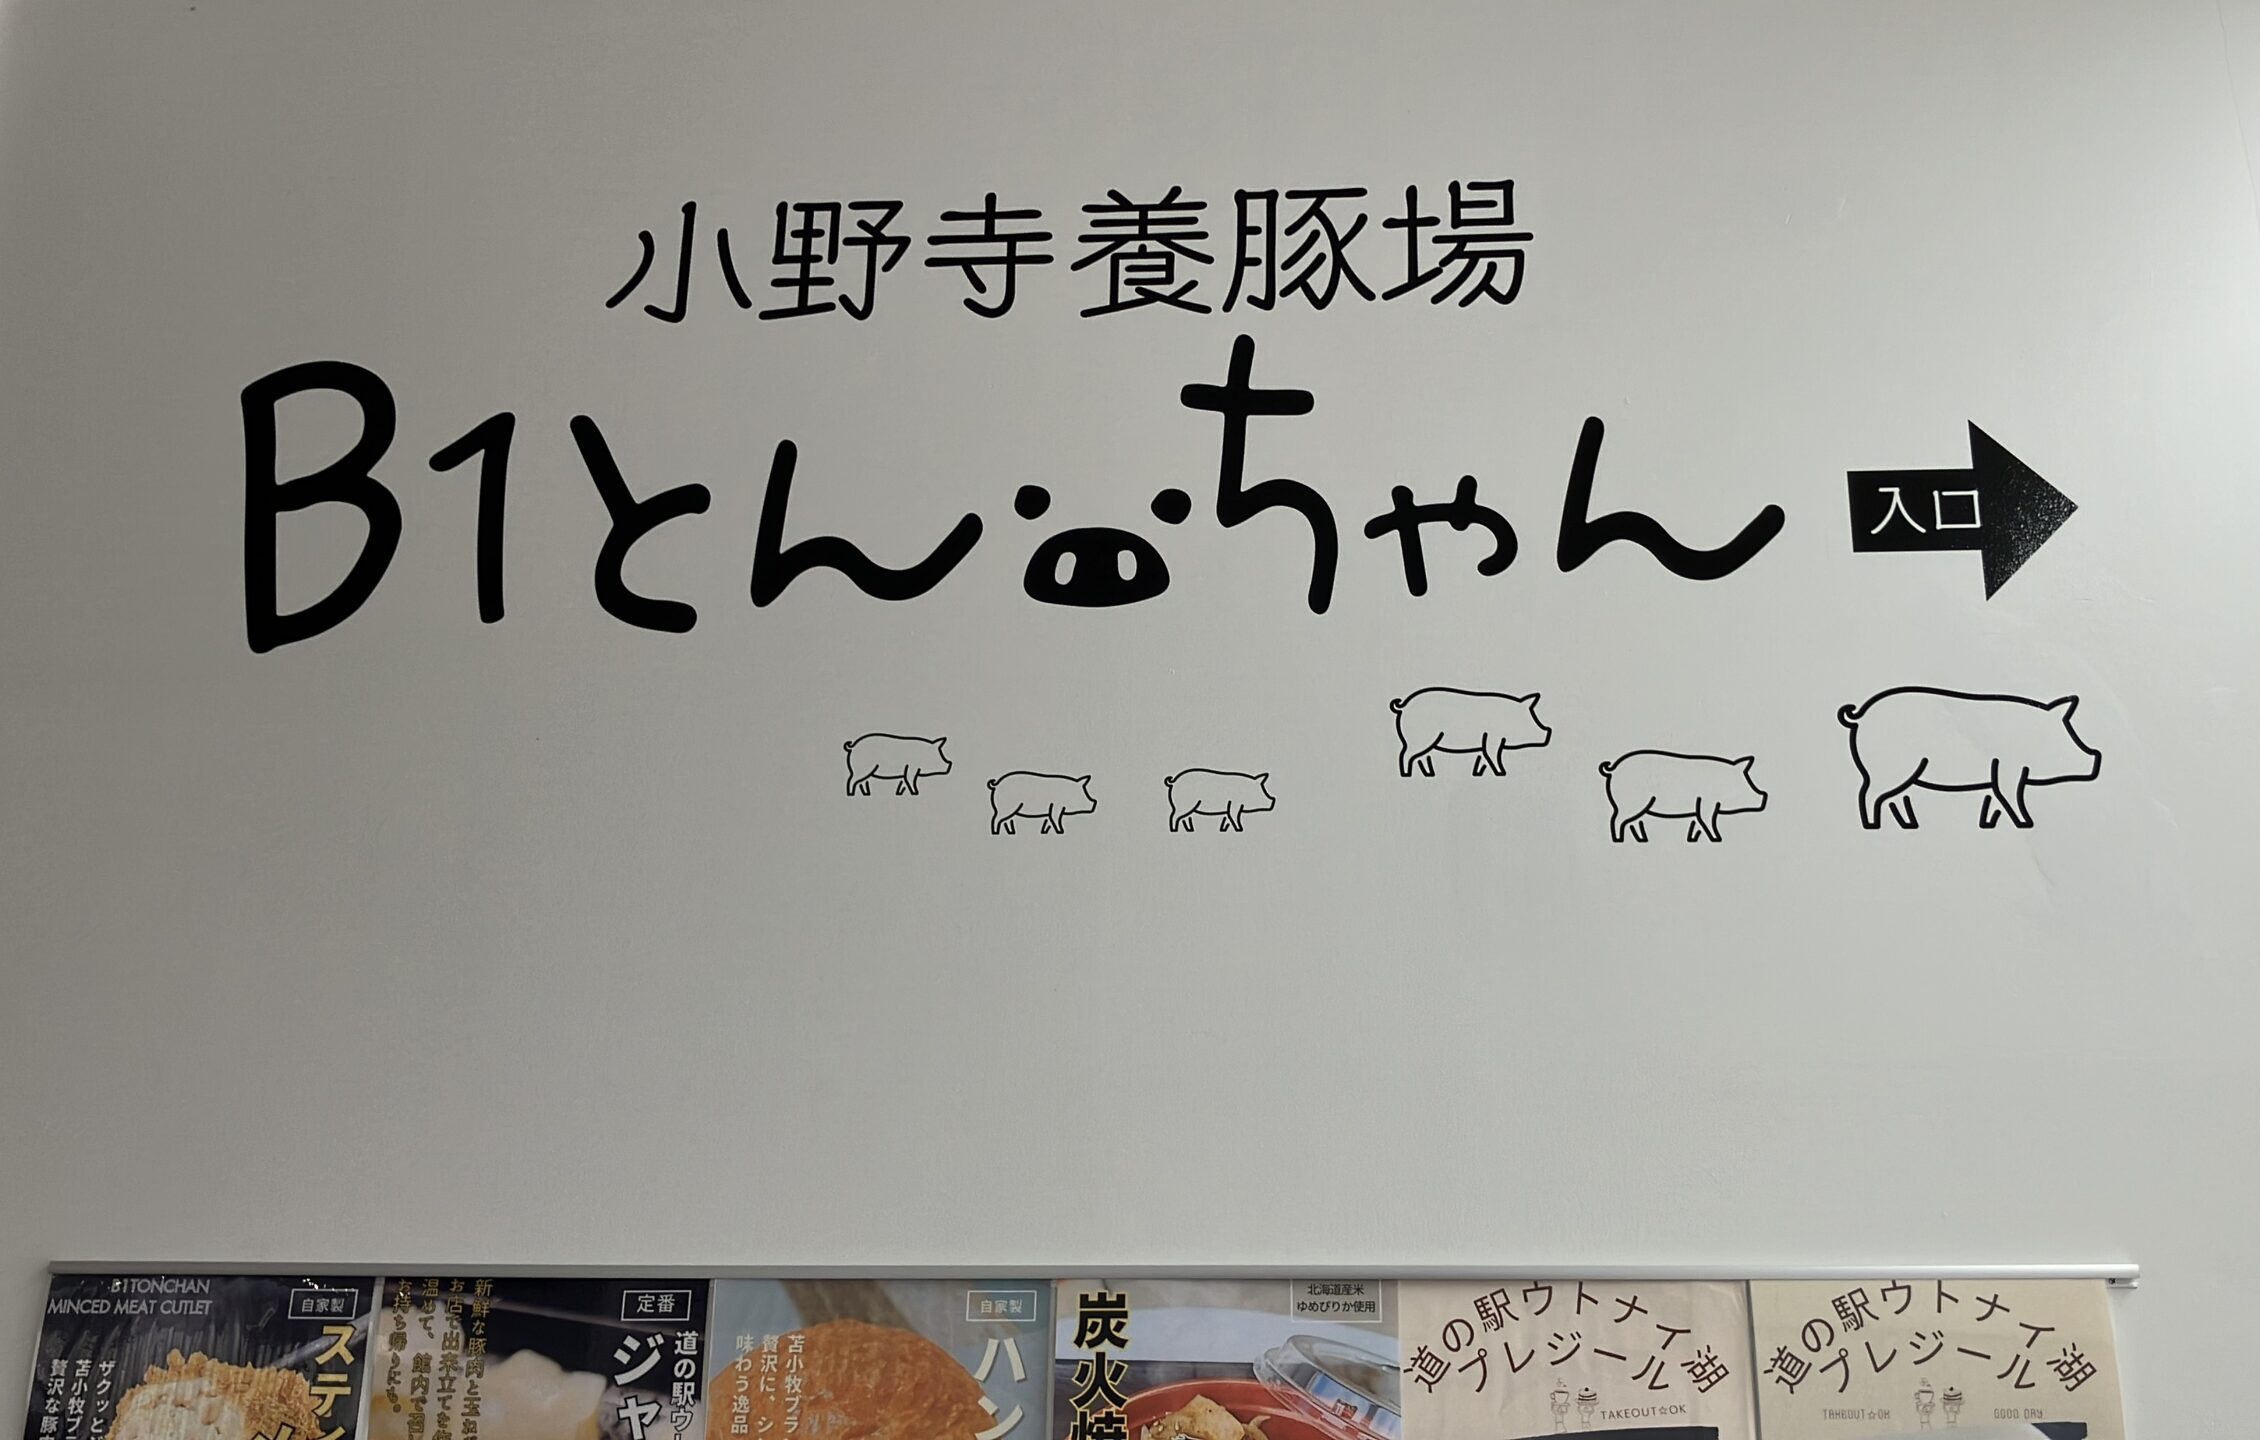 小野寺養豚場
B1とんちゃん
入口
B1TONCHAN
MINCED MEAT CUTLET
自家製
ステ
ザクッと
苫小牧ブラ
贅沢な豚
新鮮な豚肉と玉ね
お店で出来立てを
温めて、館内で召
お持ち帰りにも。
定番
道の駅ウ
ジャ
自家製
ハン
苫小牧ブラ
贅沢に、シ
味わう逸品
炭火焼
北海道産米
ゆめぴりか使用
道の駅ウトナイ湖
プレジール
TAKEOUT☆OK
道の駅ウトナイ湖
プレジール
TAKEOUT☆OK
GOOD DAY